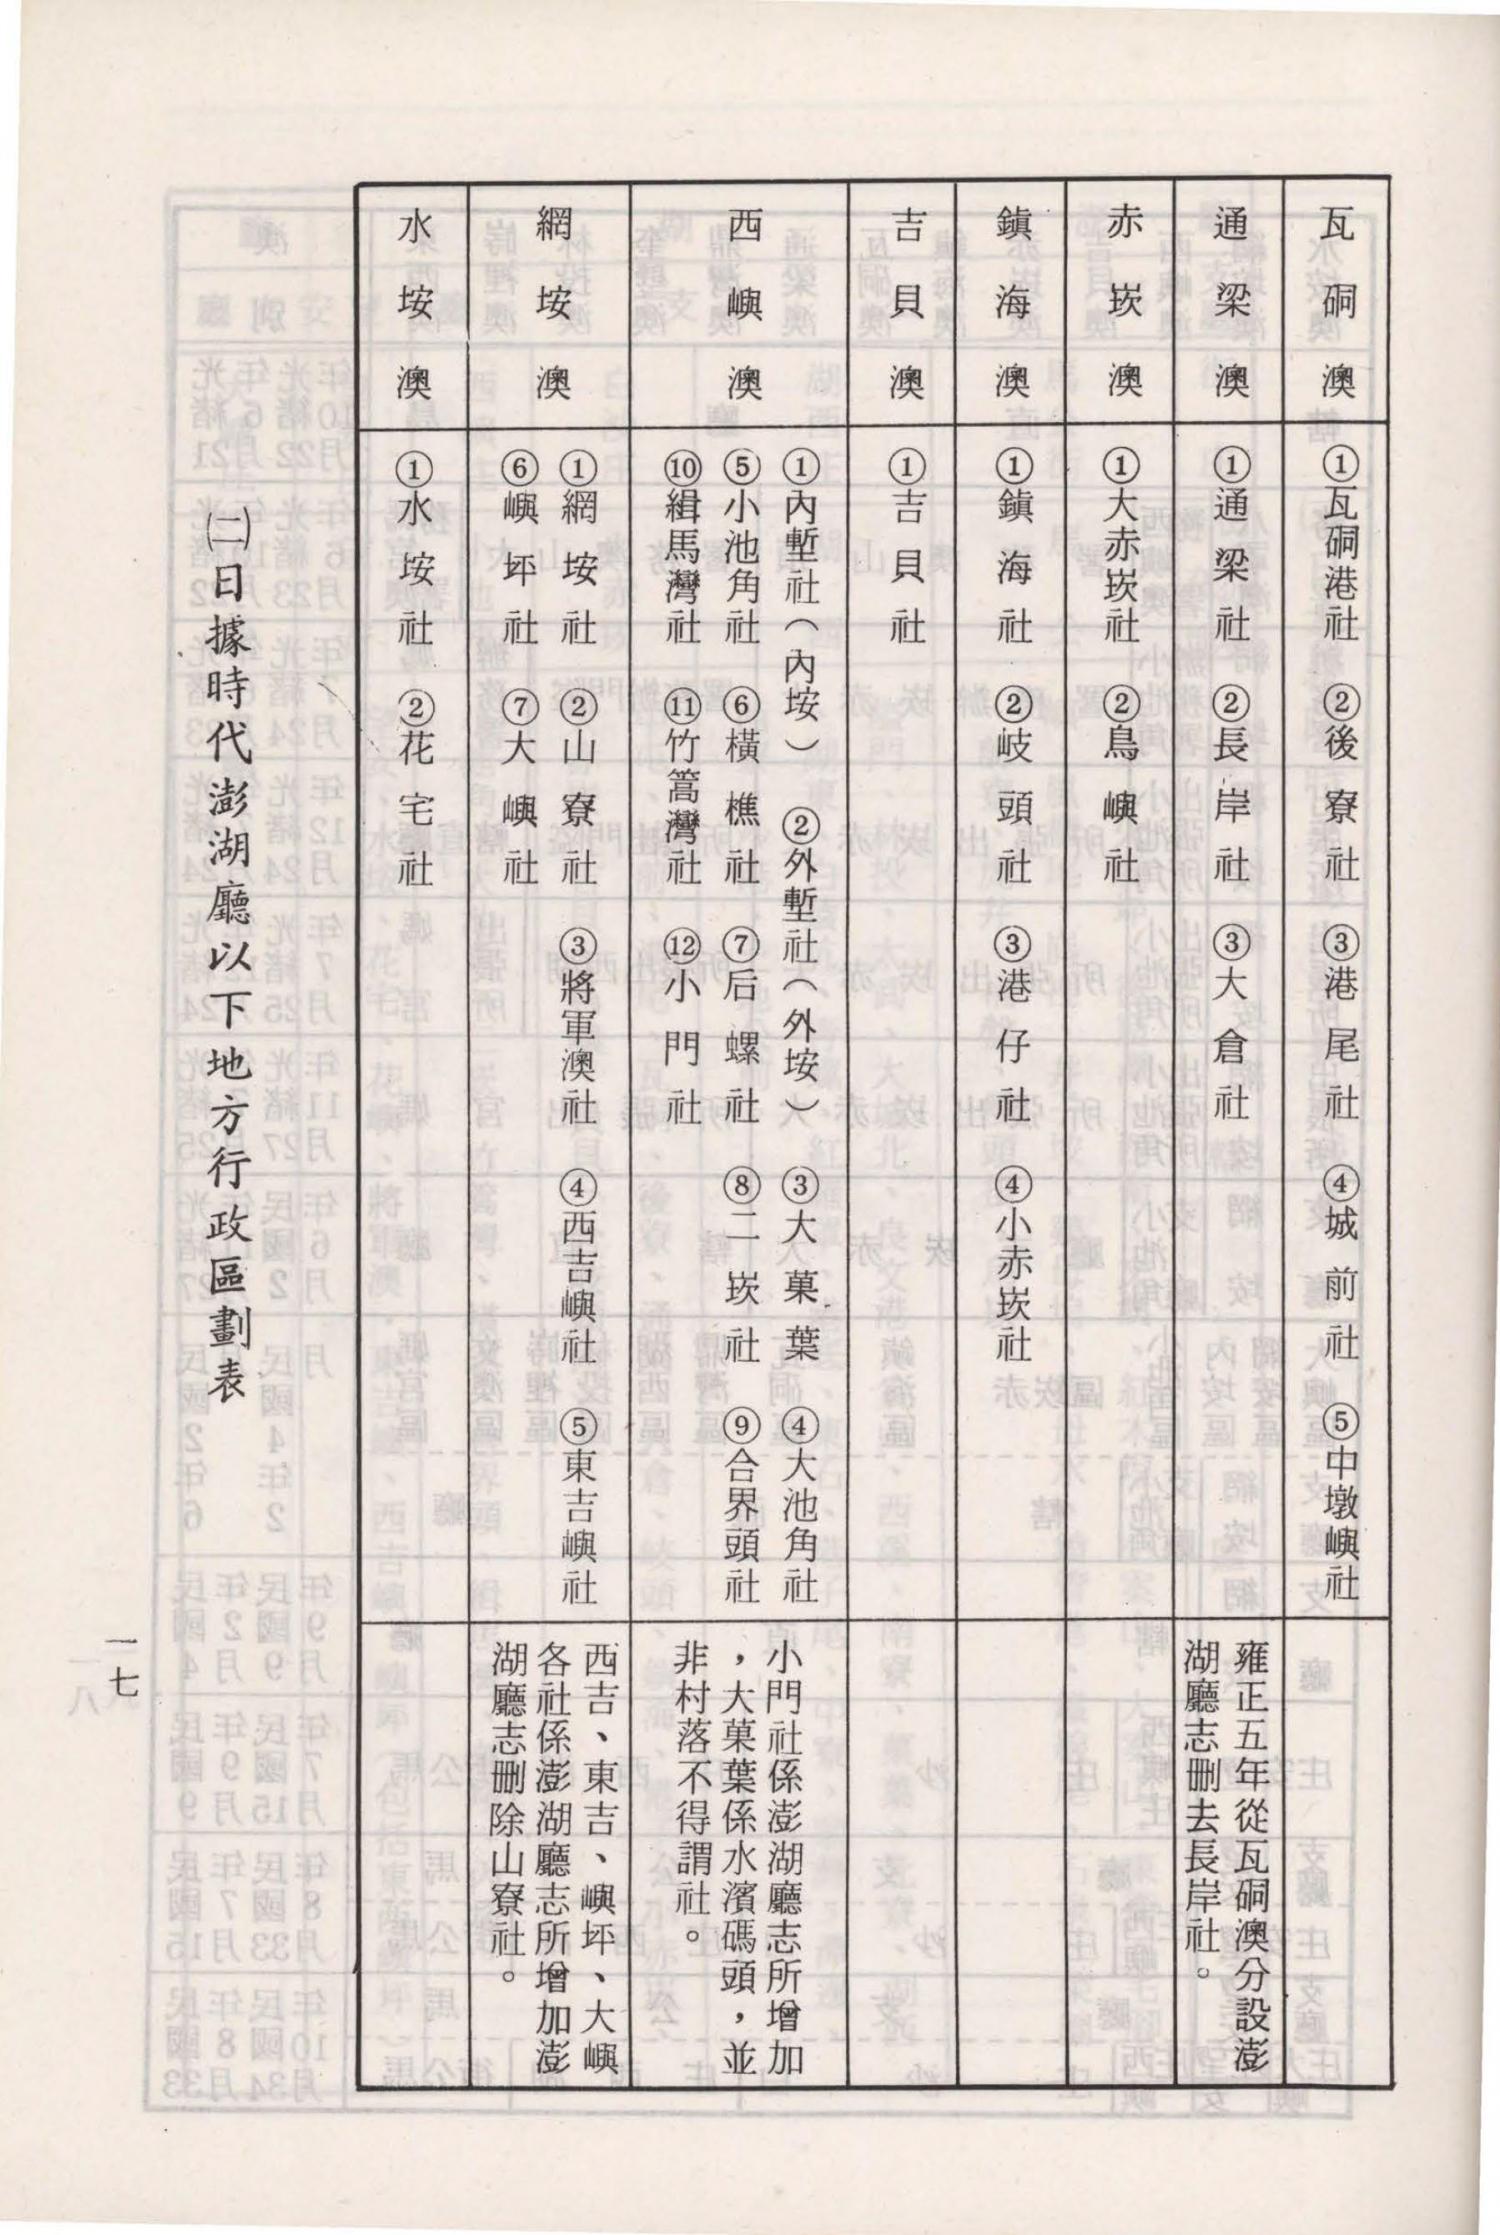 瓦硐澳
①瓦硐港社 ②後寮社 ③港尾社 ④城前社 ⑤中墩嶼社
通梁澳
①通梁社 ②長岸社 ③大倉社
雍正五年從瓦硐澳分設澎
湖廳志删去長岸社。
赤崁澳
①大赤崁社 ②鳥嶼社
鎮海澳
①鎮海社 ②岐頭社 ③港仔社 ④小赤崁社
吉貝澳
①吉貝社
西嶼澳
①內塹社（內垵） ②外塹社（外垵） ③大菓葉 ④大池角社
⑤小池角社 ⑥橫樵社 ⑦后螺社 ⑧二崁社 ⑨合界頭社
⑩緝馬灣社 ⑪竹篙灣社 ⑫小門社
小門社係澎湖廳志所增加
，大菓葉係水濱碼頭，並
非村落不得謂社。
網垵澳
①網垵社 ②山寮社 ③將軍澳社 ④西吉嶼社 ⑤東吉嶼社
⑥嶼坪社 ⑦大嶼社
西吉、東吉、嶼坪、大嶼
各社係澎湖廳志所增加澎
湖廳志删除山寮社。
水垵澳
①水垵社 ②花宅社
㈡日據時代澎湖廳以下地方行政區劃表
一七